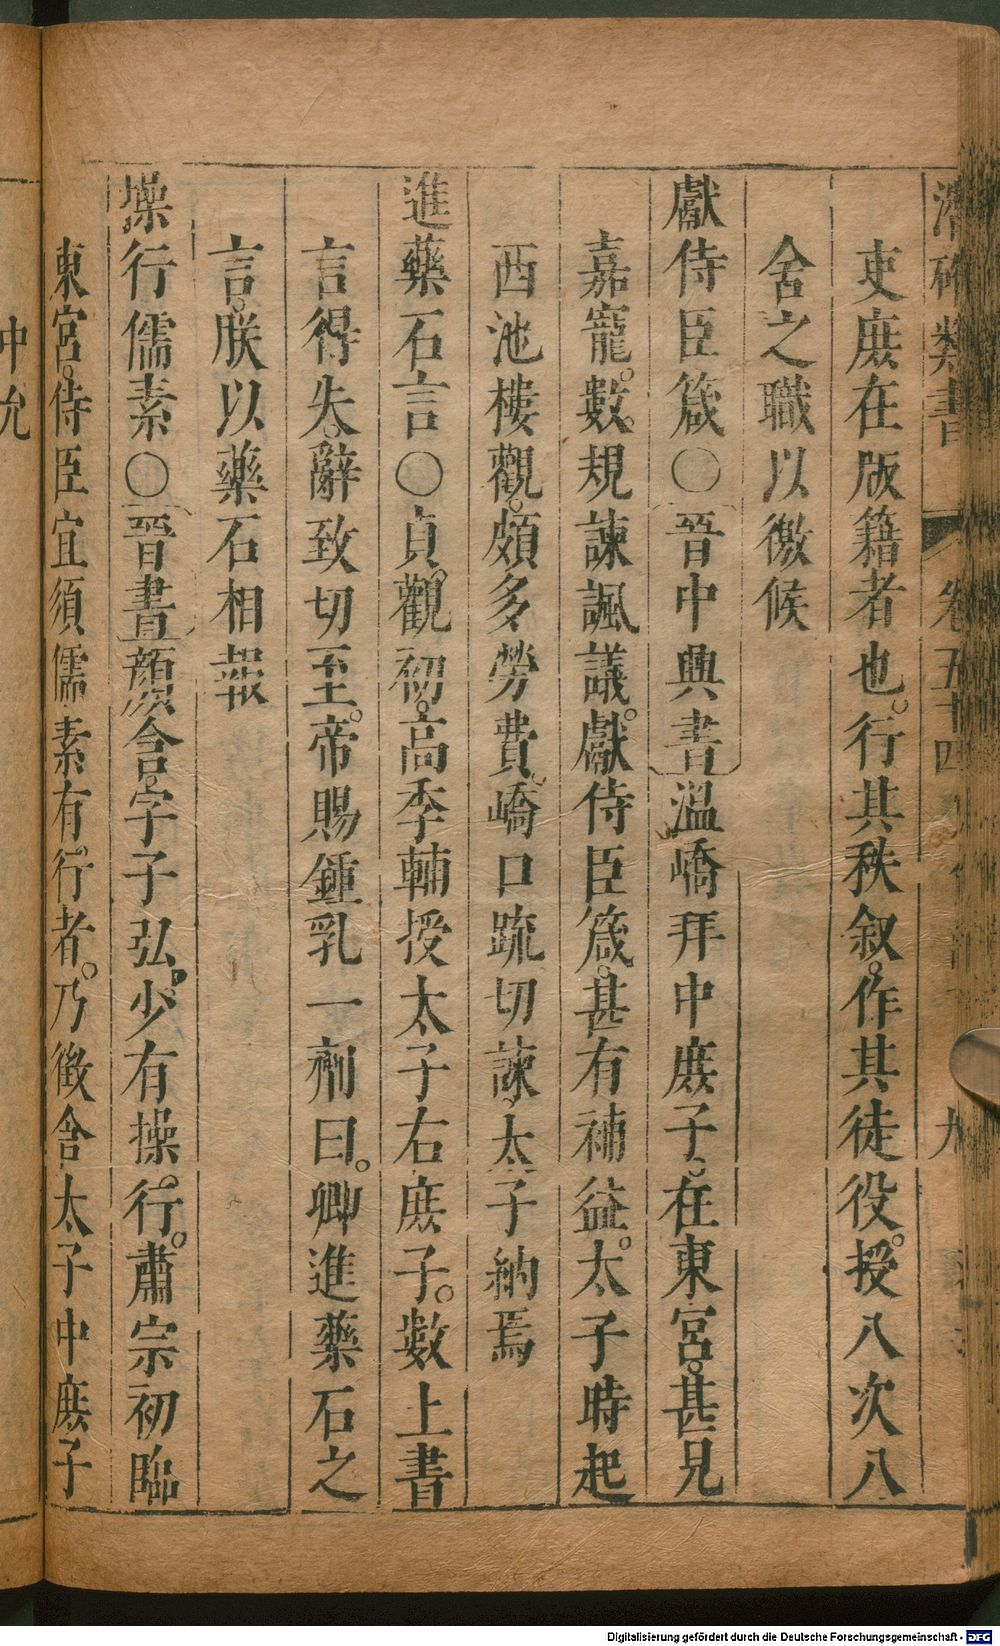 潛確類書 卷五十四 九
吏庶在版籍者也行其秩叙作其徒役授八次八
舍之職以徼候
獻侍臣箴〇晉中興書溫嶠拜中庶子在東宮甚見
嘉寵數規諫諷議獻侍臣箴甚有補益太子時起
西池樓觀頗多勞費嶠口疏切諫太子納焉
進藥石言〇貞觀初高季輔授太子右庶子數上書
言得失辭致切至帝賜鍾乳一劑曰卿進藥石之
言朕以藥石相報
操行儒素〇晉書顏含字子弘少有操行肅宗初臨
東宮侍臣宜須儒素有行者乃徵含太子中庶子
中允
Digitalisierung gefördert durch die Deutsche Forschungsgemeinschaft - DFG